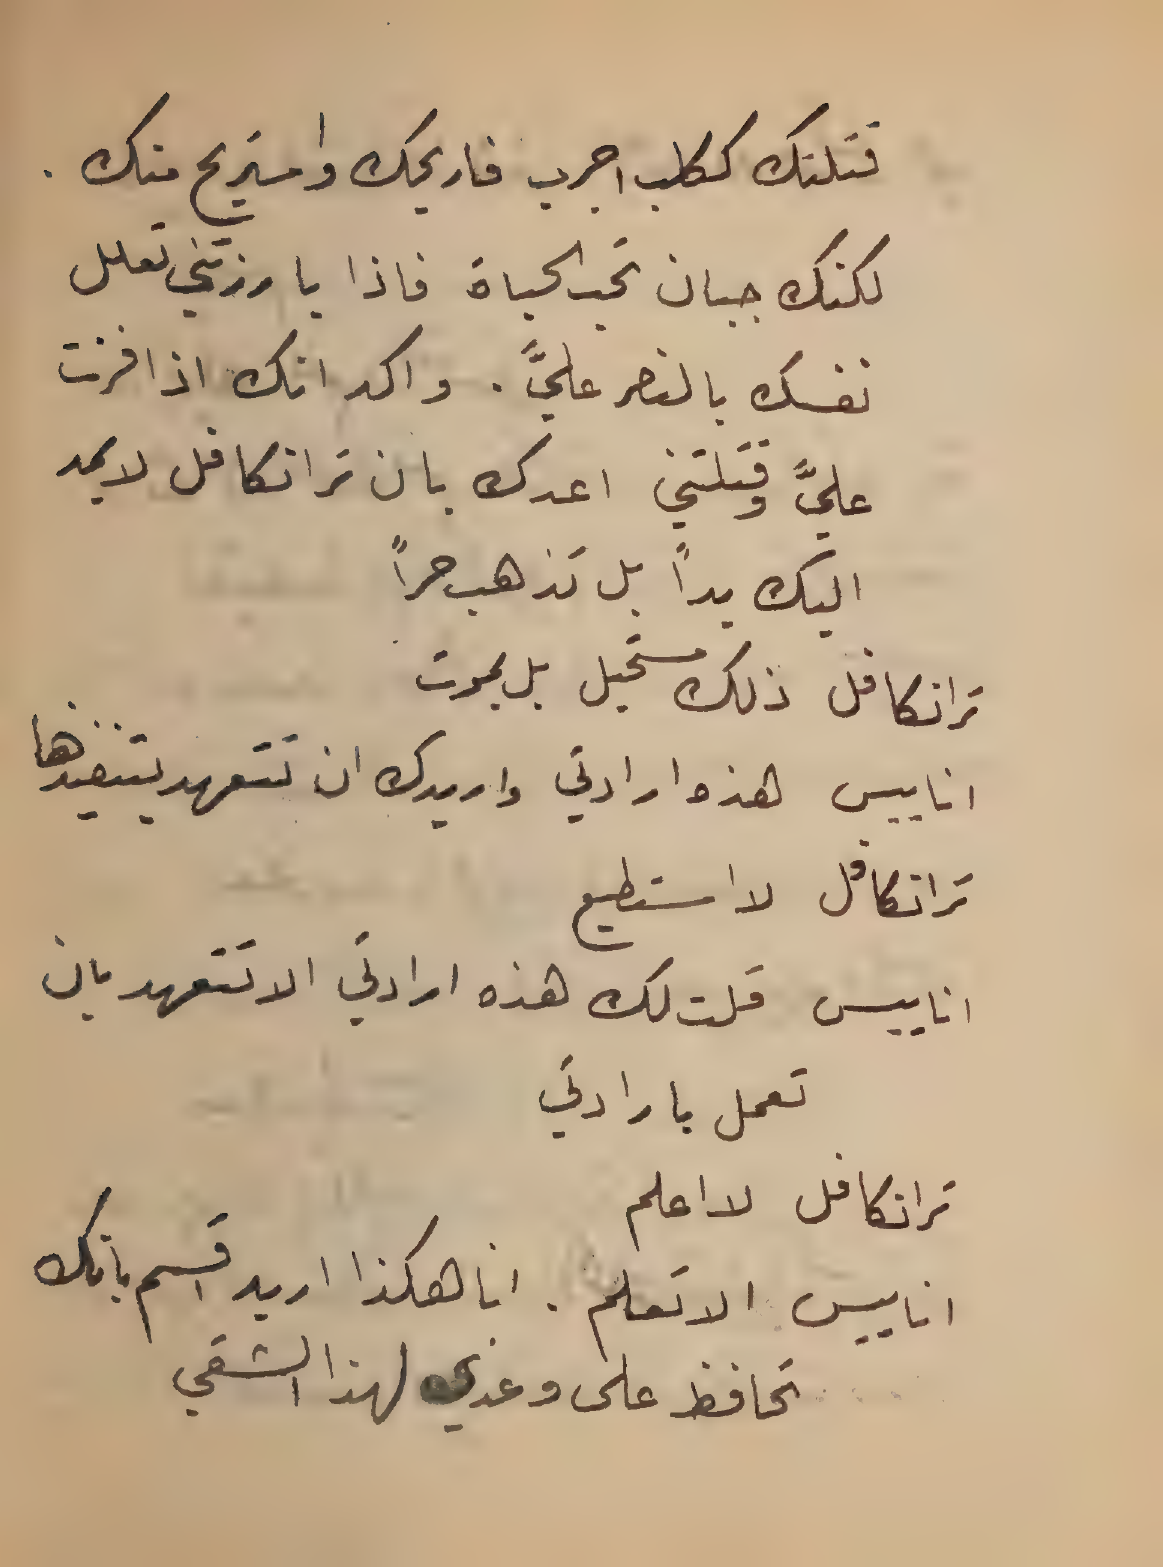 قتلتك ككلب اجرب فاريحك واستريح منك .
لكنك جبان تحب الحياة فاذا بارزتني تعلل
نفسك بالنصر عليَّ . واكد انك اذا فزت
عليَّ وقتلتني اعدك بان ترانكافل لا يمد
اليك يداً بل تذهب حراً
ترانكافل ذلك مستحيل بل يموت
اناييس هذه ارادتي واريدك ان تتعهد بتنفيذها
ترانكافل لا استطيع
اناييس قلت لك هذه ارادتي الا تتعهد بان
تعمل بارادتي
ترانكافل لا اعلم
اناييس الا تعلم . انا هكذا اريد اقسم بانك
تحافظ على وعدي لهذا الشقي